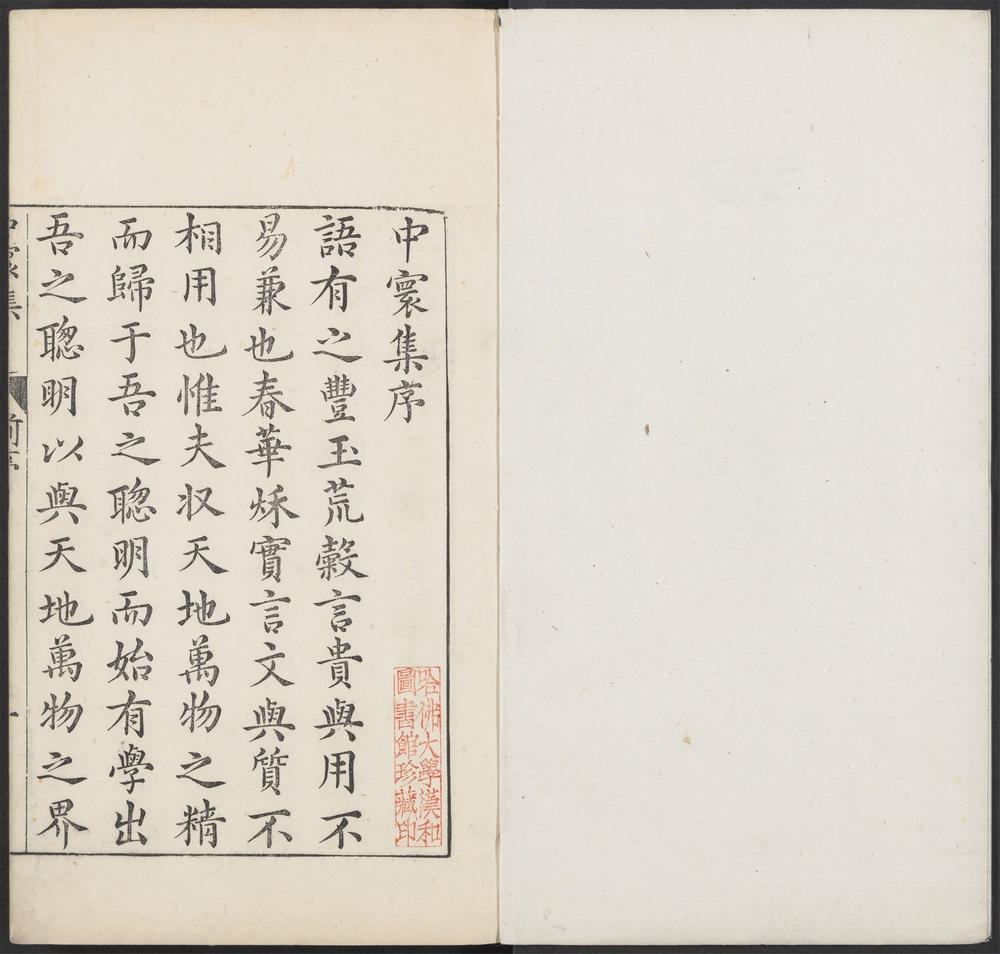 中寰集序
語有之豐玉荒穀言貴與用不
易兼也春華秌實言文與質不
相用也惟夫収天地萬物之精
而歸于吾之聰明而始有學出
吾之聰明以與天地萬物之界
哈佛大學漢和
圖書館珍藏印